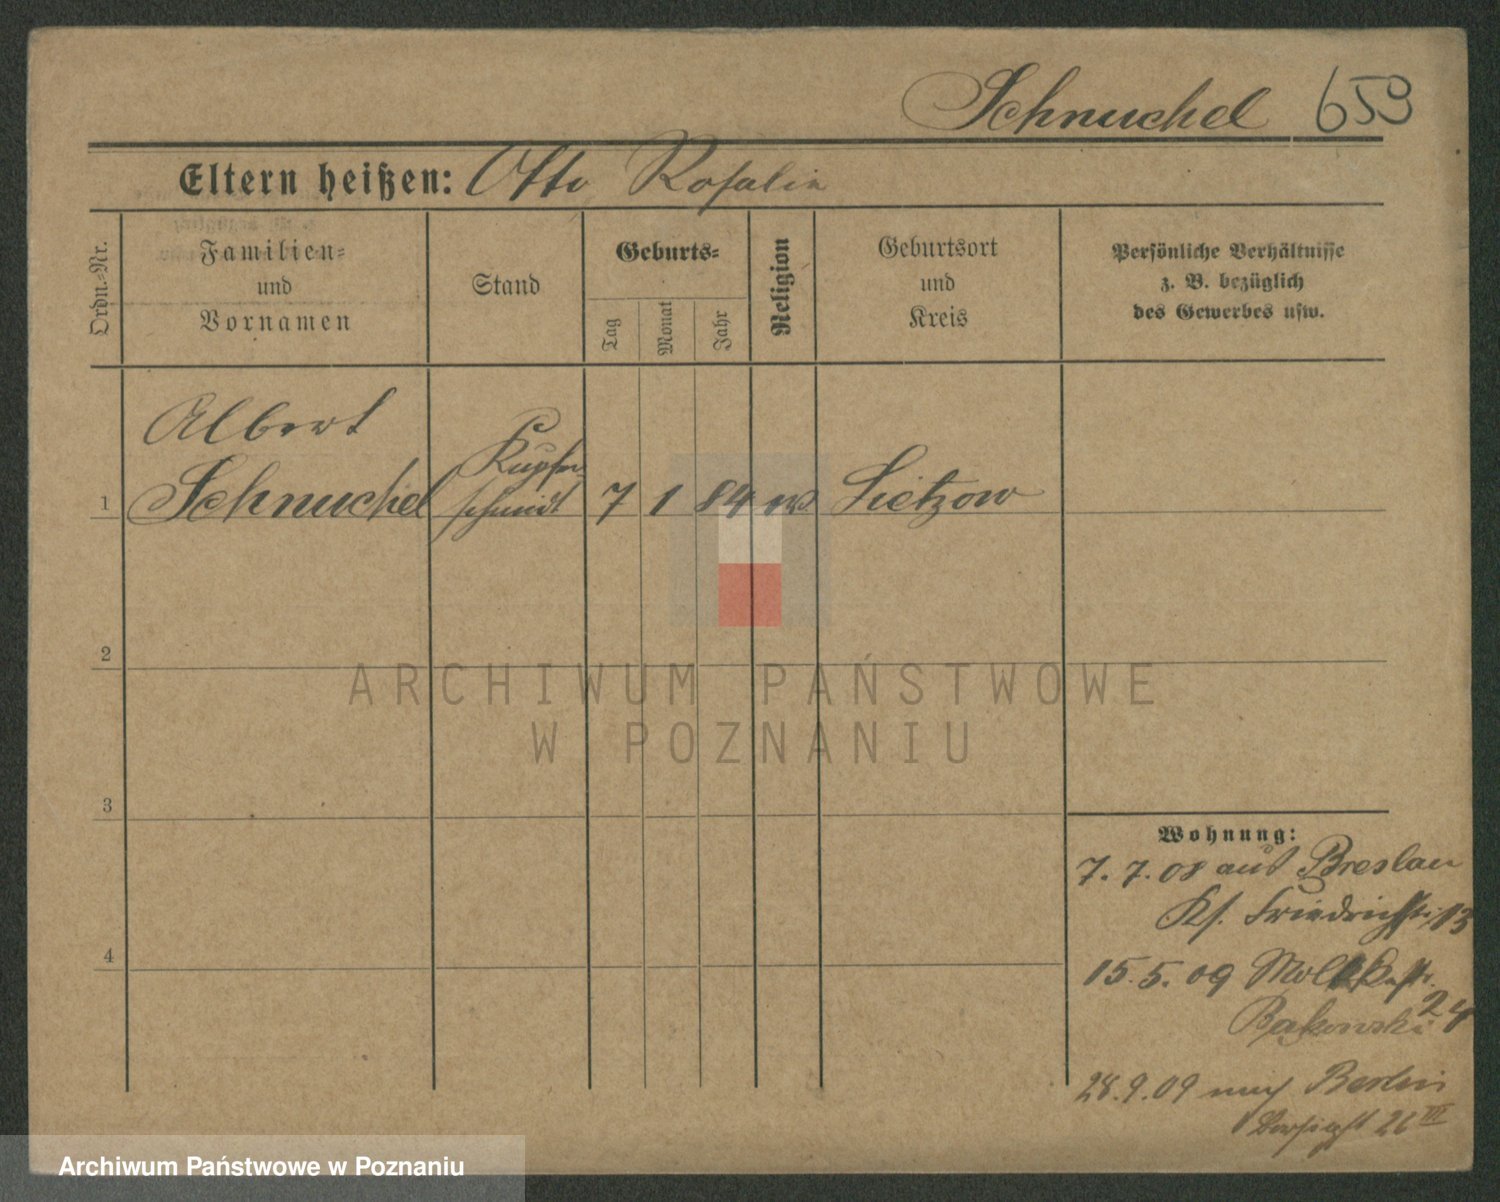 Schnuchel 659
Eltern heißen: Otto, Rosalie
Ordn.-Nr.
Familien-
und
Vornamen
Stand
Geburts-
Tag
Monat
Jahr
Religion
Geburtsort
und
Kreis
Persönliche Verhältnisse
z. B. bezüglich
des Gewerbes usw.
Albert
Schnuchel
Kupfer
schmidt
1
7 1 84
2
ARCHIWUM PAŃSTWOWE
W POZNANIU
3
4
Wohnung:
7. 7. 08 aus Breslau
Friedrichstr. 13
15. 5. 09 Moltkestr.
24
Bąkowski
28. 9. 09 nach Berlin
26 III
Archiwum Państwowe w Poznaniu